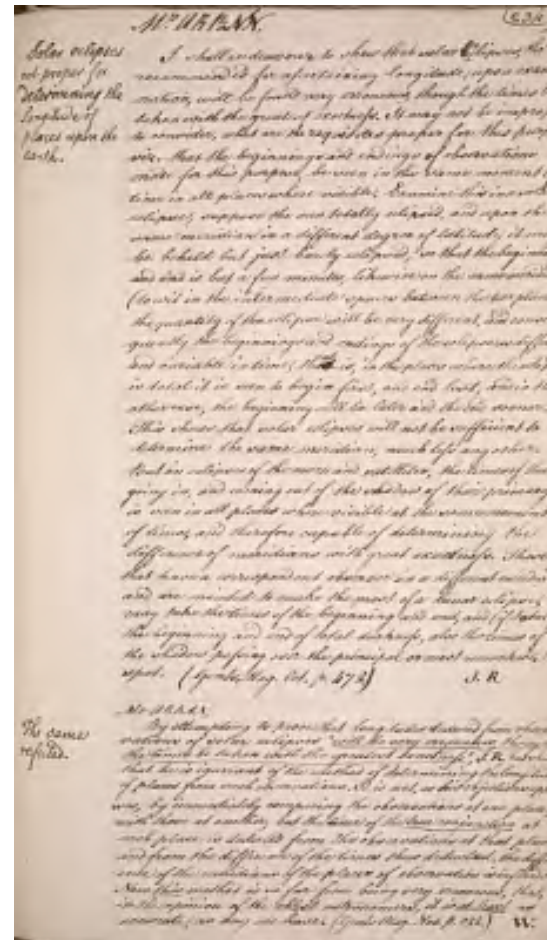 Mr. URBAN.
Solar eclipses
not proper for
determining the
longitude of
places upon the
earth.
I shall endeavour to shew that solar Eclipses, tho
recommended for ascertaining longitude, upon exam
ination, will be found very erroneous, though the times be
taken with the greatest exactness. It may not be improper
to consider, what are the requisites proper for this purp
viz. that the beginnings and endings of observations
made for this purpose, be seen in the same moment of
time in all places where visible. Examine this in a solar
eclipse; suppose the sun totally eclipsed, and upon the
same meridian in a different degree of latitude, it may
be beheld but just barely eclipsed, so that the beginning
and end is but a few minutes, likewise on the same meridian
(to wit in the intermediate spaces between the two places
the quantity of the eclipse will be very different, and conse
quently the beginnings and endings of the eclipses differ
and variable in time; that is, in the places where the eclip
is total it is seen to begin first, and end last, and in the
other, the beginning will be later and the end sooner.
This shews that solar eclipses will not be sufficient to
determine the same meridian, much less any other.
But in eclipses of the moon and satellites, the times of their
going in, and coming out of the shadow of their primary
is seen in all places where visible at the same moment
of time, and therefore capable of determining the
difference of meridians with great exactness. Those
that have a correspondent observer in a different meridian
and are minded to make the most of a lunar eclipse,
may take the times of the beginning and end, and (if total
the beginning and end of total darkness, also the times of
the shadow passing over the principal or most remarkable
spot. (Gents. Mag. Oct. p. 472) J. R
Mr. URBAN
The same
refuted.
By attempting to prove that longitudes deduced from obser
vations of solar eclipses "will be very erroneous, though
the times be taken with the greatest exactness", J.R. shews
that he is ignorant of the method of determining the longitude
of places from such observations. It is not, as his objections
by immediately comparing the observations at one place
with them at another, but the time of the true conjunction at
each place is deduced from the observations at that place
and from the difference of the times thus deduced, the differ
ence of the meridians of the places of observation
Now this method is so far from being very erroneous, that,
in the opinion of the ablest astronomers, it is
accurate, as any we have. (Gents Mag. Nov. p.